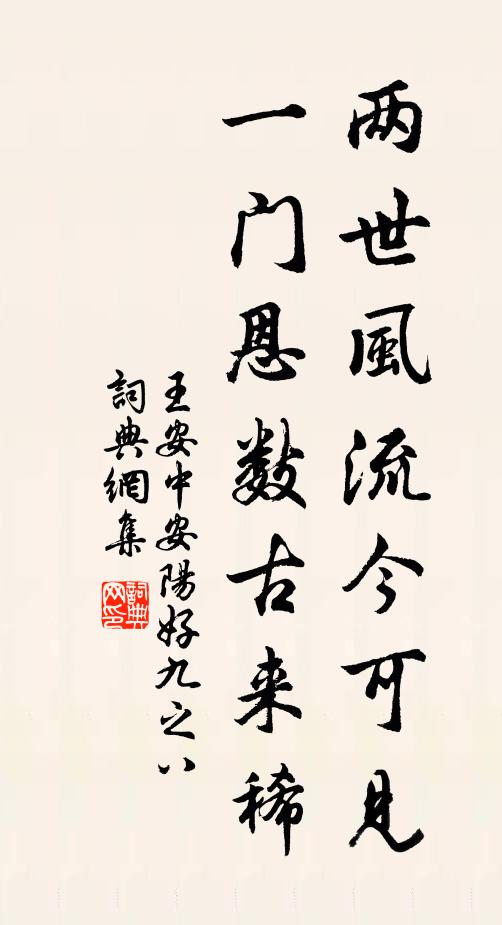 两世風流今可見
一门恩数古来稀
王安中安陽好九之八
詞典網集
詞典网印